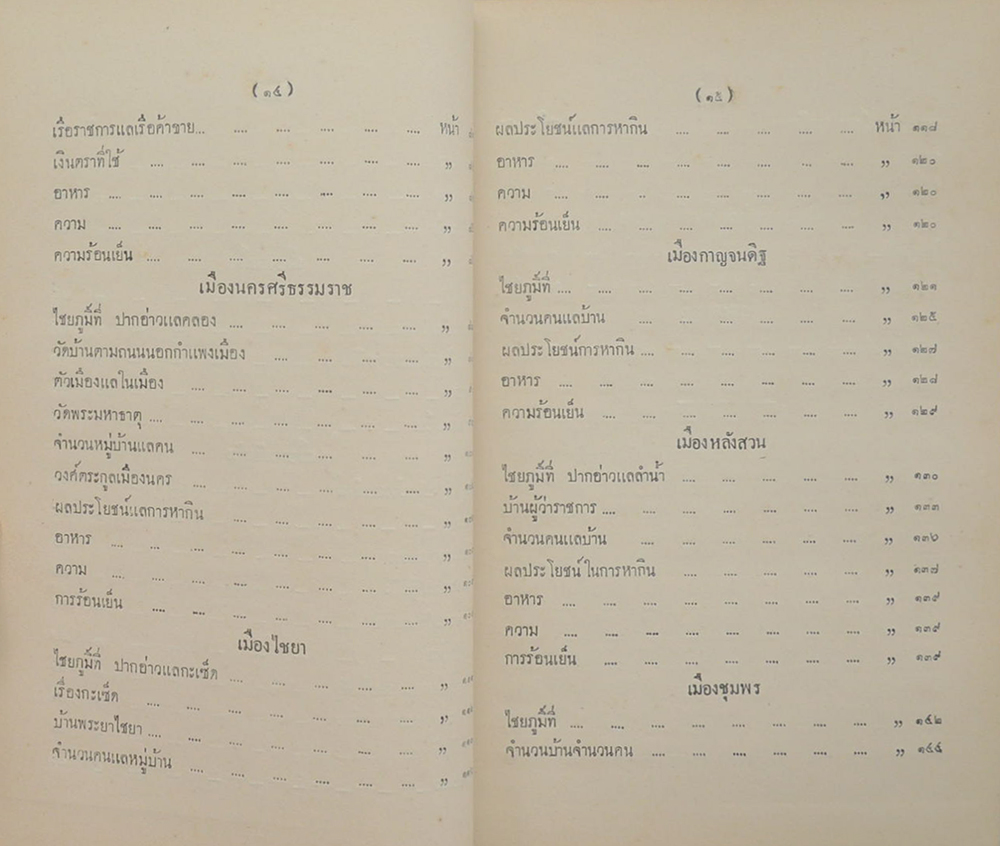 (๑๔)
เรือราชการแลเรือค้าขาย... .... .... .... .... .... หน้า
เงินตราที่ใช้ .... .... .... .... .... .... .... ,,
อาหาร .... .... .... .... .... .... .... .... ,,
ความ .... .... .... .... .... .... .... .... ,,
ความร้อนเย็น .... .... .... .... .... .... .... ,,
เมืองนครศรีธรรมราช
ไชยภูมิ์ที่ ปากอ่าวแลคลอง .... .... .... .... .... ,,
วัดบ้านตามถนนนอกกำแพงเมือง .... .... .... .... ,,
ตัวเมืองแลในเมือง .... .... .... .... .... .... ,,
วัดพระมหาธาตุ .... .... .... .... .... .... .... ,,
จำนวนหมู่บ้านแลคน .... .... .... .... .... .... ,,
วงศ์ตระกูลเมืองนคร .... .... .... .... .... .... ,,
ผลประโยชน์แลการหากิน .... .... .... .... .... ,,
อาหาร .... ... .... .... .... .... .... ,,
ความ .... .... .... .... .... .... .... ,,
การร้อนเย็น .... .... .... .... .... .... ,,
เมืองไชยา
ไชยภูมิ์ที่ ปากอ่าวแลกะเซ็ด .... .... .... .... .... ,,
เรื่องกะเซ็ด .... .... .... .... .... .... .... ,,
บ้านพระยาไชยา .... .... .... .... .... .... .... ,,
จำนวนคนแลหมู่บ้าน .... .... .... .... .... .... ,,
(๑๕)
ผลประโยชน์แลการหากิน .... .... .... .... .... หน้า ๑๑๘
อาหาร .... .... .... .... .... .. ... .... ,, ๑๒๐
ความ .... .... .. .... .... .... .... .... ,, ๑๒๐
ความร้อนเย็น .... .... .... .... .... .... .... ,, ๑๒๐
เมืองกาญจนดิฐ
ไชยภูมิ์ที่ .... .... .... .... .... .... .... .... ,, ๑๒๑
จำนวนคนแลบ้าน .... .... .... .... .... .... ,, ๑๒๕
ผลประโยชน์การหากิน .... .... .... .... .... .... ,, ๑๒๗
อาหาร .... .... .... .... .... .... .... .... ,, ๑๒๘
ความร้อนเย็น .... .... .... .... .... .... .... ,, ๑๒๙
เมืองหลังสวน
ไชยภูมิ์ที่ ปากอ่าวแลลำน้ำ .... .... .... .... .... ,, ๑๓๐
บ้านผู้ว่าราชการ .... .... .... .... .... .... .... ,, ๑๓๓
จำนวนคนแลบ้าน .... .... .... .... .... .... ,, ๑๓๖
ผลประโยชน์ในการหากิน .... .... .... .... .... ,, ๑๓๗
อาหาร .... .... .... .... .... .... .... .... ,, ๑๓๙
ความ .... .... .... .... .... .... .... .... ,, ๑๓๙
การร้อนเย็น .... .... .... .... .... .... .... ,, ๑๓๙
เมืองชุมพร
ไชยภูมิ์ที่ .... .... .... .... .... .... .... .... ,, ๑๔๒
จำนวนบ้านจำนวนคน .... .... .... .... .... .... ,, ๑๔๔